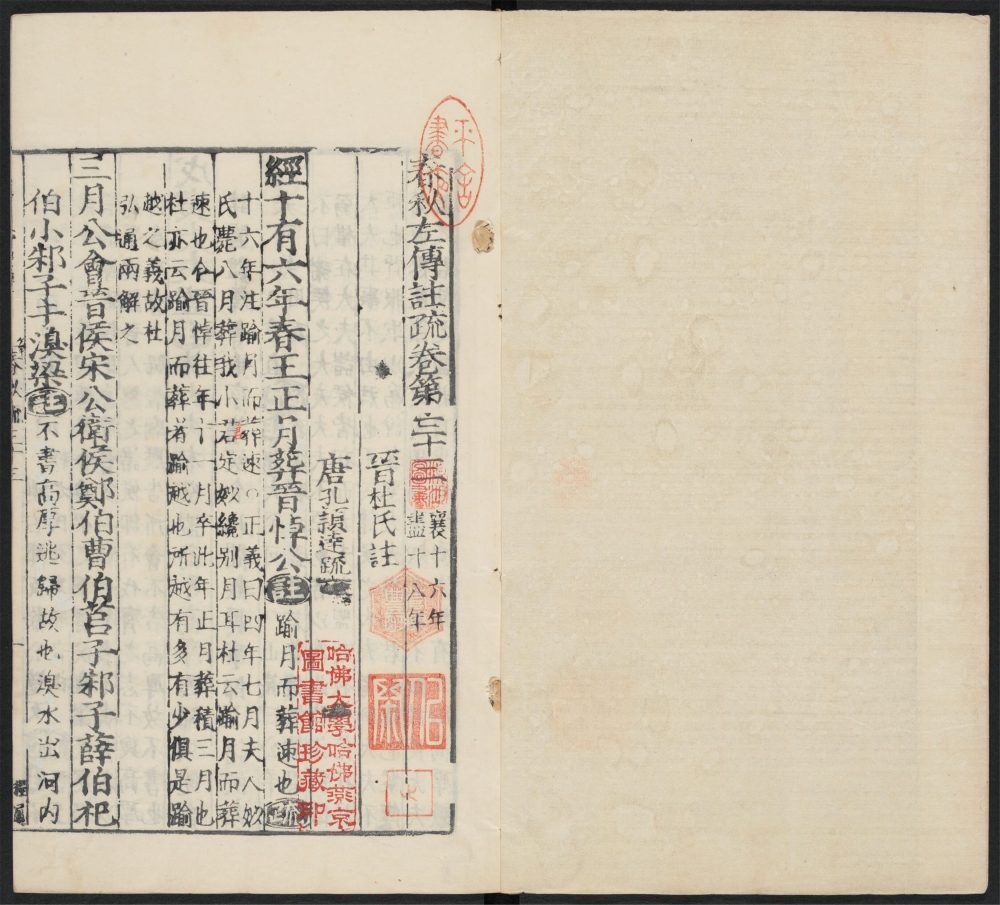 春秋左傳註疏卷第三十三 襄十六年
盡十八年
晉杜氏註
唐孔穎達疏
經十有六年春王正月葬晉悼公註踰月而葬速也疏
十六年注踰月而葬速○正義曰四年七月夫人姒
氏薨八月葬我小君定姒纔別月耳杜云踰月而葬
速也今晉悼往年十一月卒此年正月葬積三月也
杜亦云踰月而葬者踰越也所越有多有少俱是踰
越之義故杜
弘通兩解之
三月公會晉侯宋公衛侯鄭伯曹伯莒子邾子薛伯杞
伯小邾子于溴梁註不書高厚逃歸故也溴水出河內
哈佛大學哈佛燕京
圖書館珍藏印